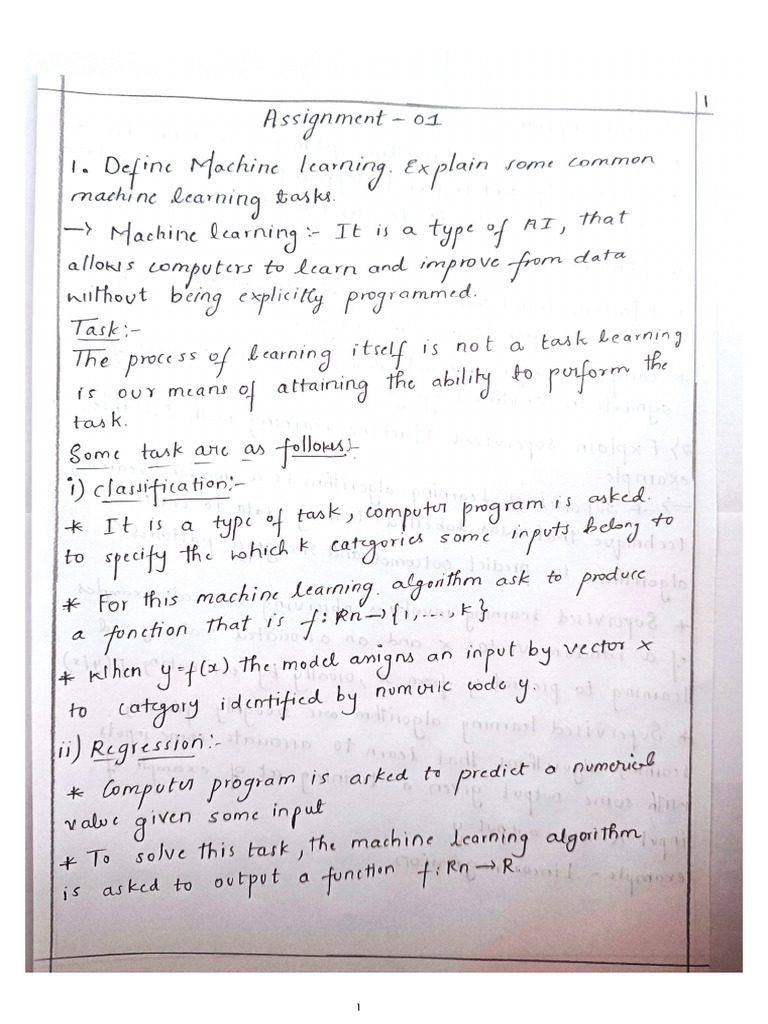 1
Assignment - 01
1. Define Machine learning. Explain some common
machine learning tasks.
→ Machine learning :- It is a type of AI, that
allows computers to learn and improve from data
without being explicitly programmed.
Task :-
The process of learning itself is not a task learning
is our means of attaining the ability to perform the
task.
Some task are as follows :-
i) classification :-
* It is a type of task, computer program is asked.
to specify the which k categories some inputs belong to
* For this machine learning. algorithm ask to produce
a function that is f : Rn → {1, ...., k}
* When y = f(x) the model assigns an input by vector x
to category identified by numeric code y.
ii) Regression :-
* Computer program is asked to predict a numerical
value given some input
* To solve this task, the machine learning algorithm
is asked to output a function f : Rn → R
1